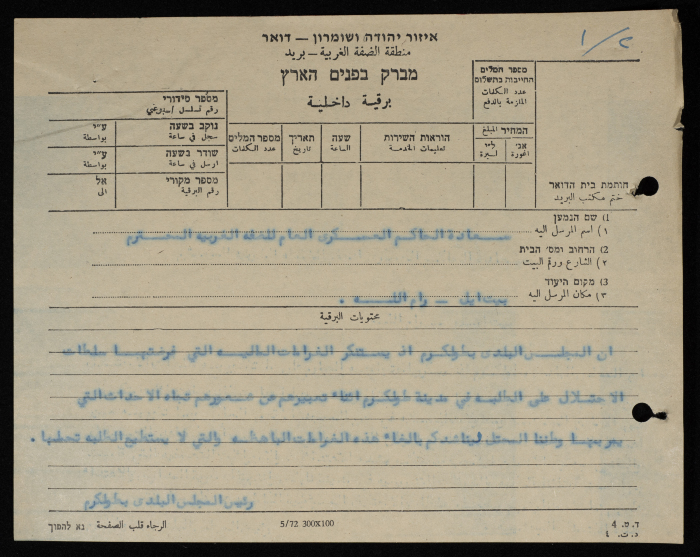 1/2
איזור יהודה ושומרון – דואר
منطقة الضفة الغربية – بريد
מברק בפנים הארץ
برقية داخلية
מספר המלים החייבות בתשלום
عدد الكلمات الملزمة بالدفع
המחיר المبلغ
אג' اغورة
ל"י ليرة
הוראות השירות
تعليمات الخدمة
שעה
الساعة
תאריך
تاريخ
מספר המלים
عدد الكلمات
מספר סידורי
رقم تسلسل
נוקב בשעה
سجل في ساعة
ע"י
بواسطة
שודר בשעה
ارسل في ساعة
ע"י
بواسطة
מספר מקורי
رقم البرقية
אל
الى
חותמת בית הדואר
ختم مكتب البريد
1) שם הנמען
١) اسم المرسل اليه
سعادة الحاكم العسكري العام للضفه الغربيه المحترم
2) הרחוב ומס' הבית
٢) الشارع ورقم البيت
3) מקום היעוד
٣) مكان المرسل اليه
بيت ايل – رام اللــه .
محتويات البرقية
ان المجلس البلدي بطولكرم اذ يستنكر الغرامات الماليه التي فرضتها سلطات
الاحتلال على الطلبه في مدينة طولكرم اثناء تعبيرهم عن شعورهم تجاه الاحداث التي
يمر بها وطننا المحتل ليناشدكم بالغاء هذه الغرامات الباهظه والتي لا يستطيع الطلبه تحملها .
رئيس المجلس البلدي بطولكرم
ד. ט. 4
د. ت. ٤
5/72 300X100
الرجاء قلب الصفحة
נא להפוך